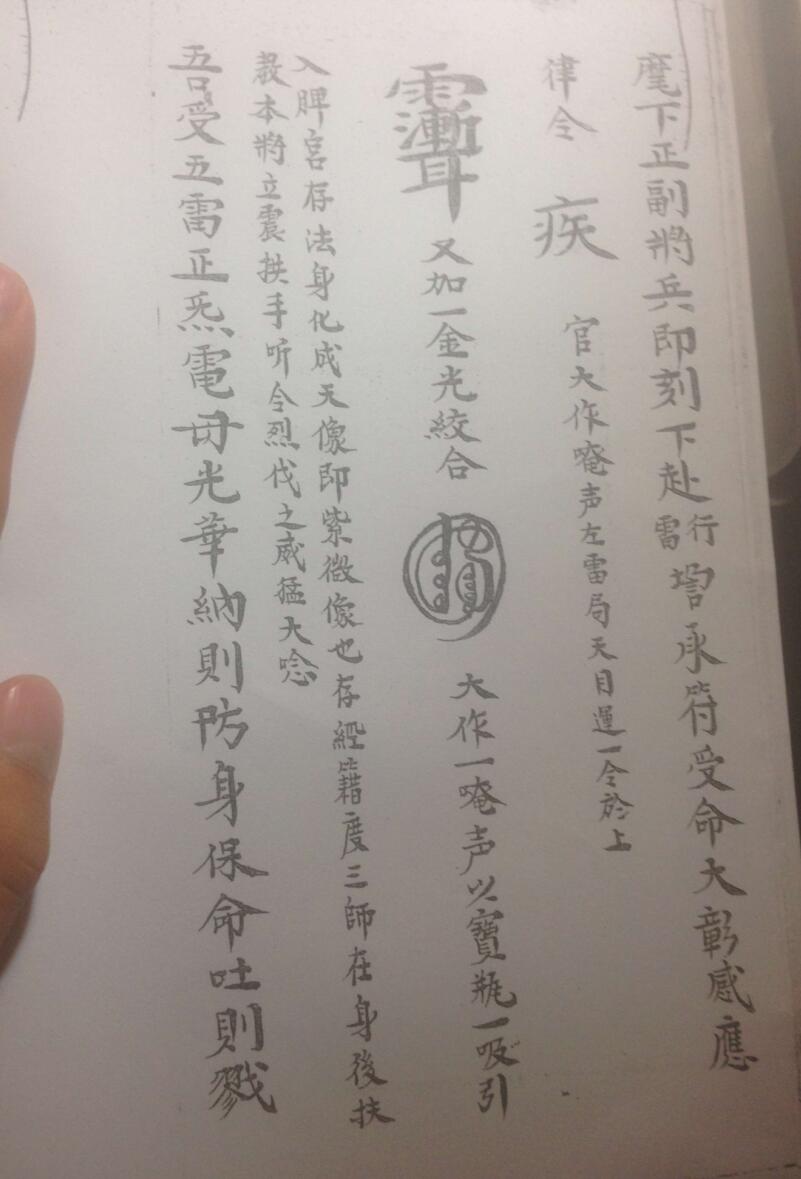 麾下正副將兵即刻下赴行雷壇承符受命大彰感應
律令 疾 官大作唵声左雷局天目運一令於上
又加一金光絞合 大作一唵声以寶瓶一吸引
入脾宮存法身化成天像即紫微像也存經籍度三師在身後扶
教本將立震拱手听令烈伐之威猛大唸
吾受五雷正炁電母光華納則防身保命吐則戮